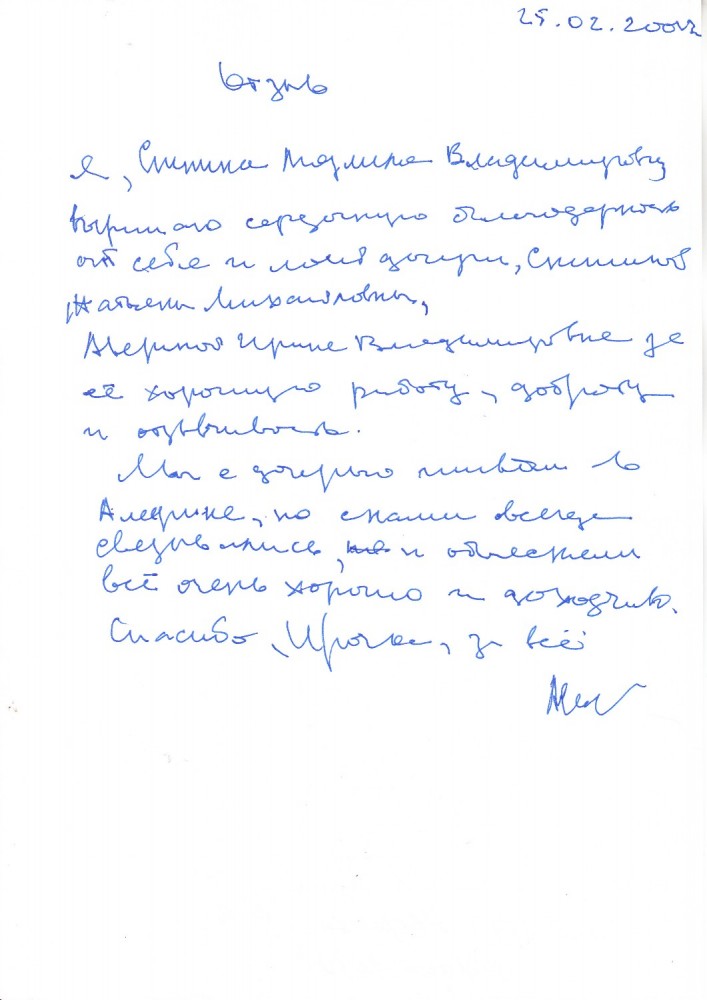 25.02.200
Отзыв
Я, Владимировна
выражаю сердечную благодарность
от себя и моей дочери,
Татьяны Михайловны,
Ирине Владимировне за
её хорошую работу, доброту
и отзывчивость.
Мы с дочерью живём в
Америке, но с нами всегда
связывались, и объясняли
всё очень хорошо и доходчиво.
Спасибо, Ирочка, за всё